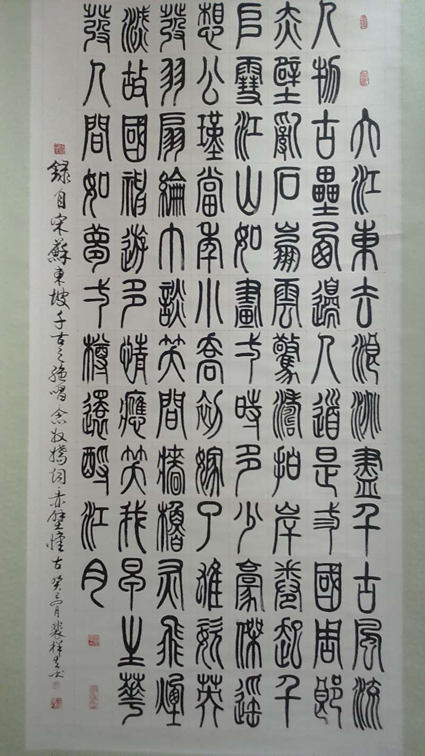 大江東去浪淘盡千古風流
人物古壘西邊人道是三國周郎
赤壁亂石崩雲驚濤拍岸卷起千
堆雪江山如畫一時多少豪傑遙
想公瑾當年小喬初嫁了雄姿英
發羽扇綸巾談笑間檣櫓灰飛煙
滅故國神遊多情應笑我早生華
發人間如夢一樽還酹江月
錄自宋蘇東坡千古之絕唱念奴嬌詞赤壁懷古